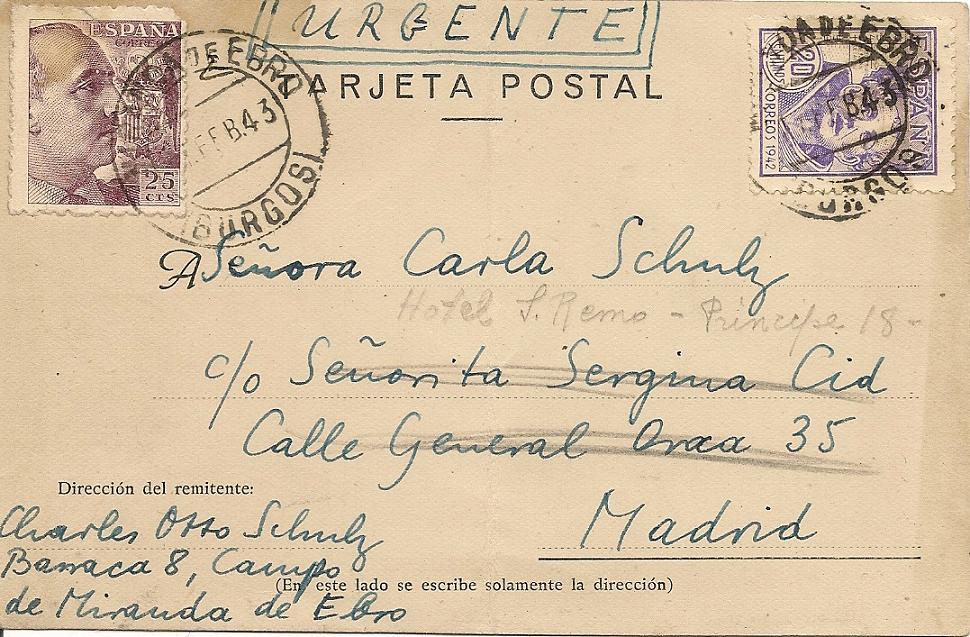 URGENTE
TARJETA POSTAL
ESPAÑA
CORREOS
25
CTS
DE EBRO
FEB.43
(BURGOS)
ESPAÑA
20
CORREOS 1942
DA DE EBRO
FEB.43
BURGOS
A Señora Carla Schulz
Hotel S. Remo - Príncipe 18-
c/o Señorita Sergina Cid
Calle General Oraa 35
Madrid
Dirección del remitente:
Charles Otto Schulz
Barraca 8, Campo
de Miranda de Ebro
(En este lado se escribe solamente la dirección)